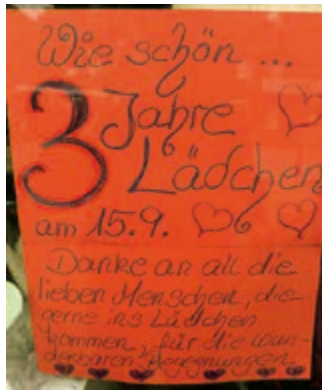 Wie schön ...
3 Jahre
Lädchen
am 15.9.
Danke an all die
lieben Menschen, die
gerne ins Lädchen
kommen, für die wun-
derbaren Begegnungen